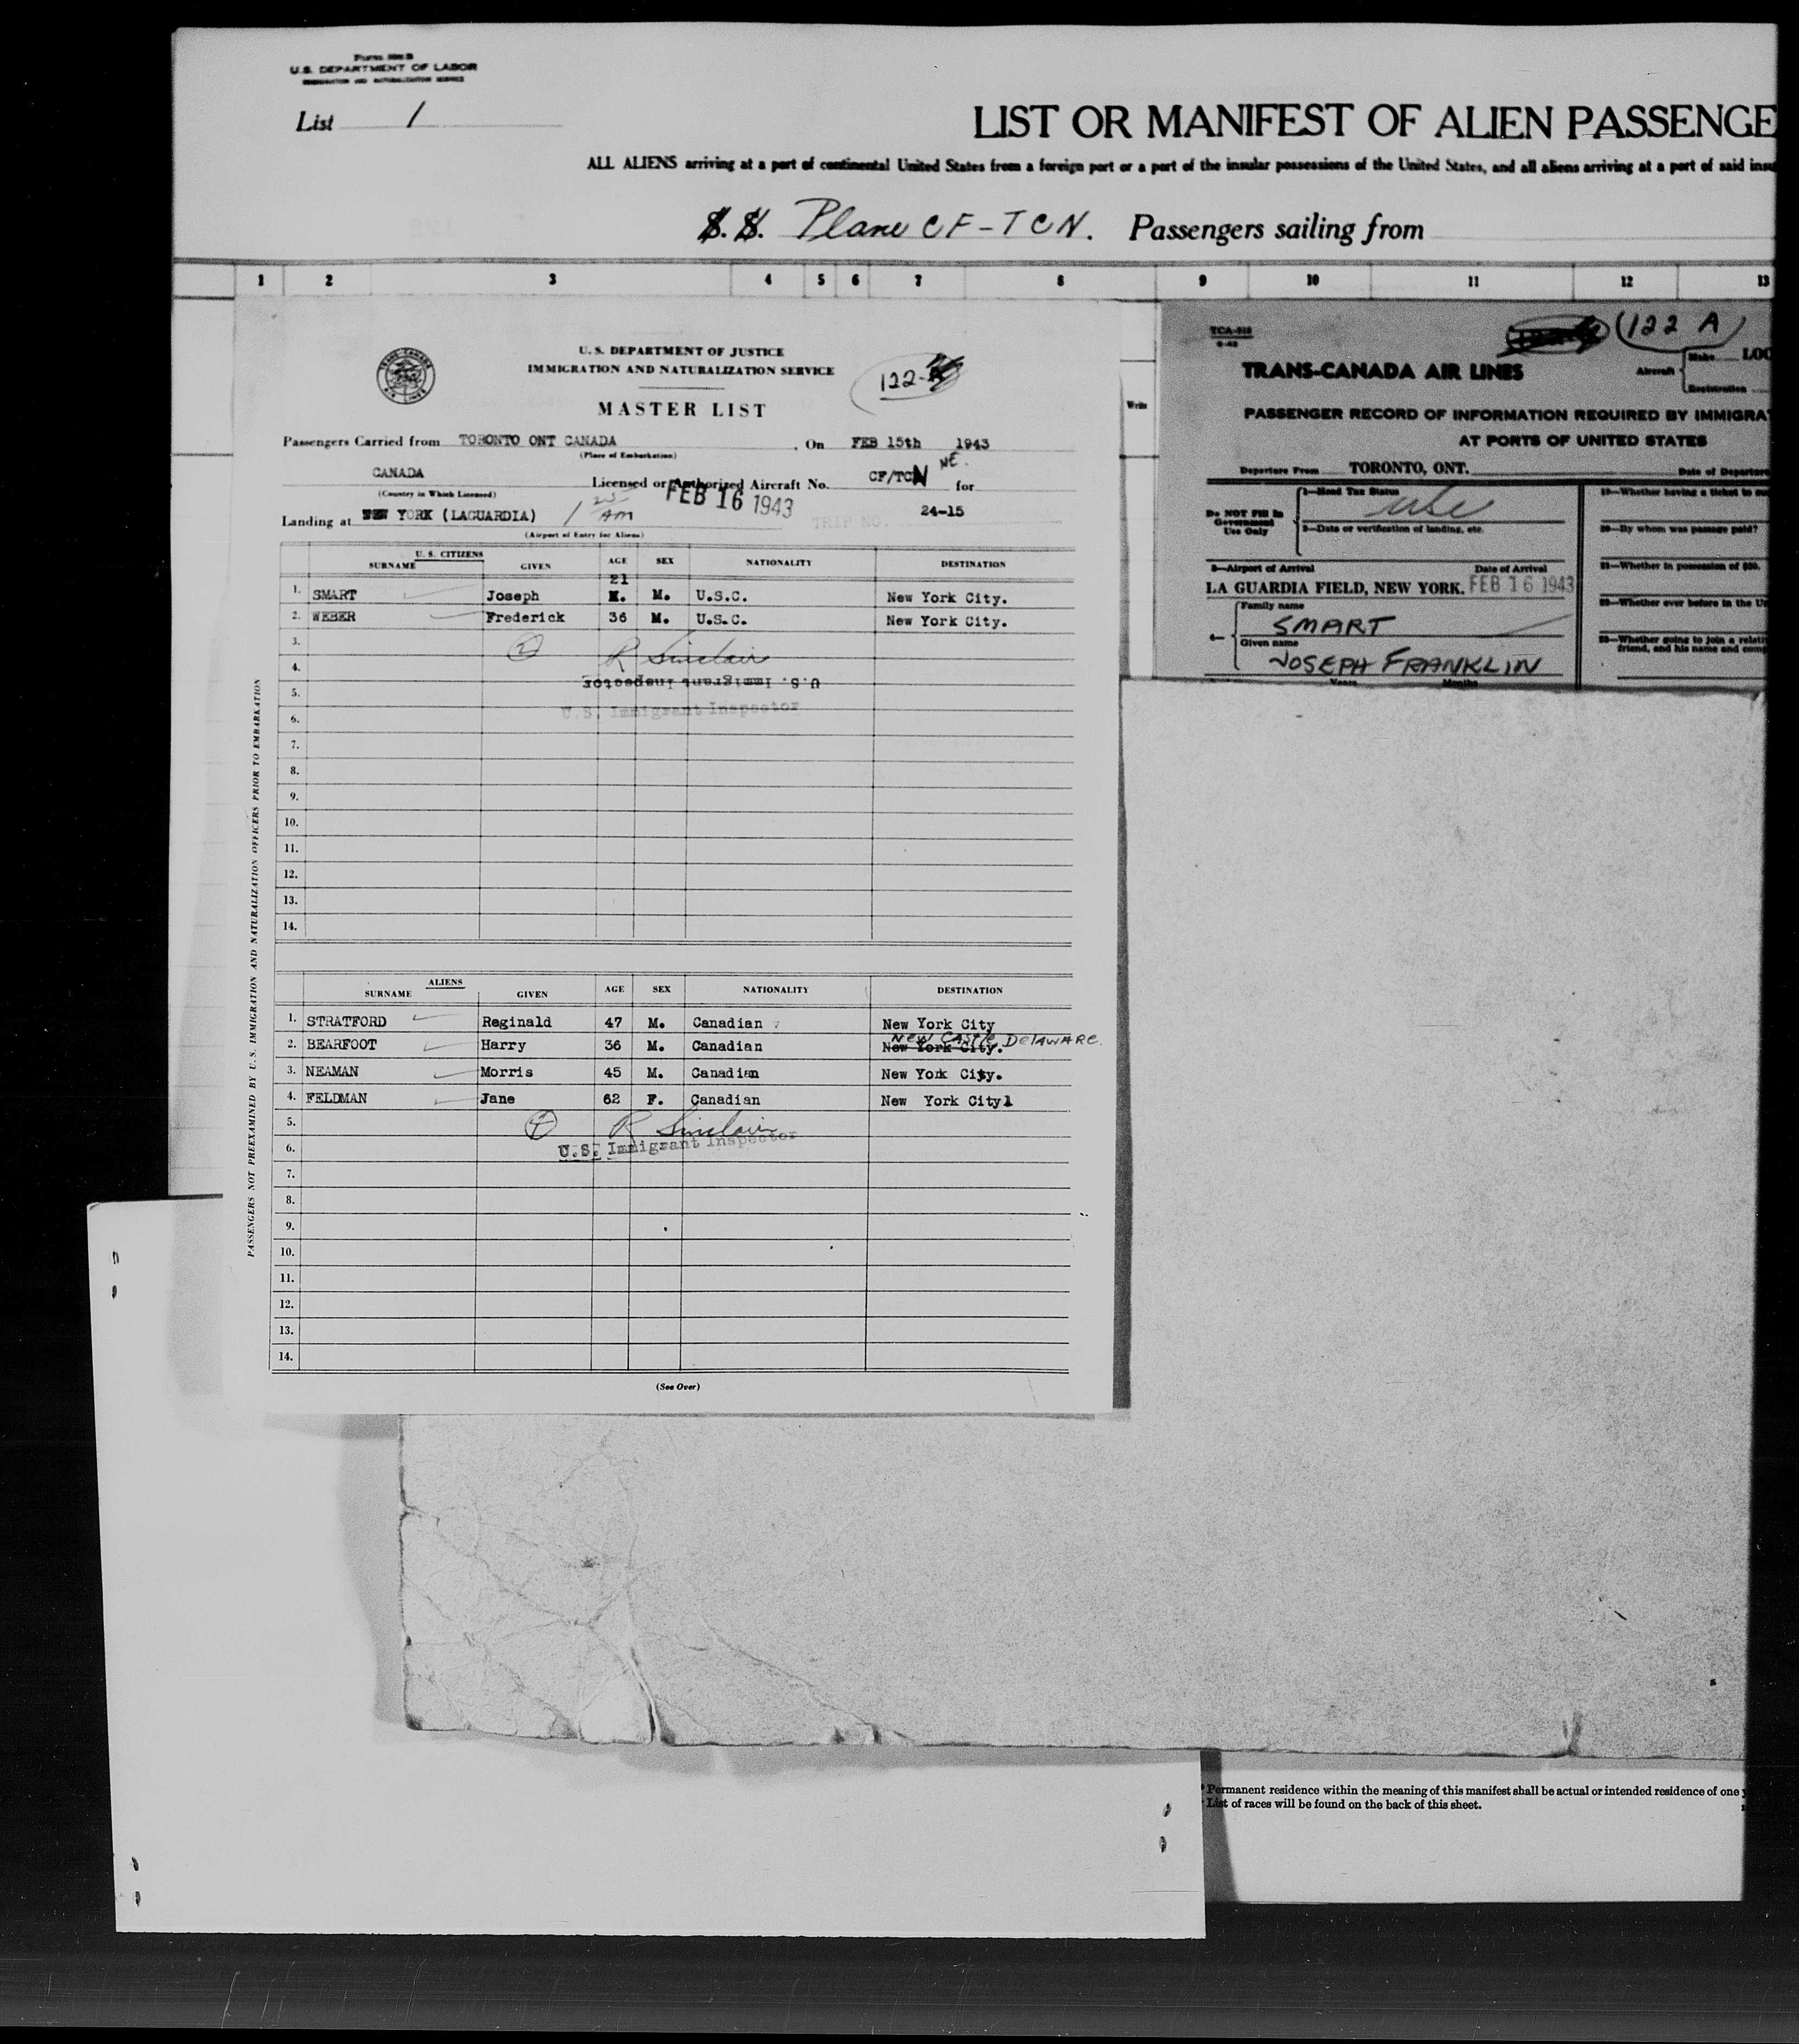 U.S. DEPARTMENT OF LABOR
IMMIGRATION AND NATURALIZATION SERVICE
List 1
LIST OR MANIFEST OF ALIEN PASSENGE
ALL ALIENS arriving at a port of continental United States from a foreign port or a port of the insular possessions of the United States, and all aliens arriving at a port of said insu
S.S. Plane CF-TCN. Passengers sailing from
1 2 3 4 5 6 7 8 9 10 11 12 13
TRANS-CANADA AIR LINES
U. S. DEPARTMENT OF JUSTICE
IMMIGRATION AND NATURALIZATION SERVICE
122-
MASTER LIST
Passengers Carried from TORONTO ONT CANADA , On FEB 15th 1943
(Place of Embarkation)
NE.
CANADA Licensed or Authorized Aircraft No. CF/TCN for
(Country in Which Licensed)
FEB 16 1943
Landing at NEW YORK (LAGUARDIA) 1 25 AM TRIP NO. 24-15
(Airport of Entry for Aliens)
PASSENGERS NOT PREEXAMINED BY U.S. IMMIGRATION AND NATURALIZATION OFFICERS PRIOR TO EMBARKATION
U. S. CITIZENS
SURNAME GIVEN AGE SEX NATIONALITY DESTINATION
21
1. SMART Joseph M. M. U.S.C. New York City.
2. WEBER Frederick 36 M. U.S.C. New York City.
3. 2 R Sinclair
4.
U.S. Immigrant Inspector
5.
U.S. Immigrant Inspector
6.
7.
8.
9.
10.
11.
12.
13.
14.
ALIENS
SURNAME GIVEN AGE SEX NATIONALITY DESTINATION
1. STRATFORD Reginald 47 M. Canadian New York City
New Castle, DELAWARE.
2. BEARFOOT Harry 36 M. Canadian New York City.
3. NEAMAN Morris 45 M. Canadian New York City.
4. FELDMAN Jane 62 F. Canadian New York City1
5. 4 R Sinclair
6. U.S. Immigrant Inspector
7.
8.
9.
10.
11.
12.
13.
14.
(See Over)
Write
(122 A)
Make LOC
TRANS-CANADA AIR LINES Aircraft
Registration
PASSENGER RECORD OF INFORMATION REQUIRED BY IMMIGRA
AT PORTS OF UNITED STATES
Departure From TORONTO, ONT. Date of Departure
Do NOT Fill In Government Use Only
1—Head Tax Status
2—Date or verification of landing, etc.
3—Airport of Arrival Date of Arrival
LA GUARDIA FIELD, NEW YORK. FEB 16 1943
4— Family name
SMART
Given name
JOSEPH FRANKLIN
Years Months
19—Whether having a ticket to
20—By whom was passage paid?
21—Whether in possession of $50.
22—Whether ever before in the Un
23—Whether going to join a relati
friend, and his name and comp
Permanent residence within the meaning of this manifest shall be actual or intended residence of one y
List of races will be found on the back of this sheet.